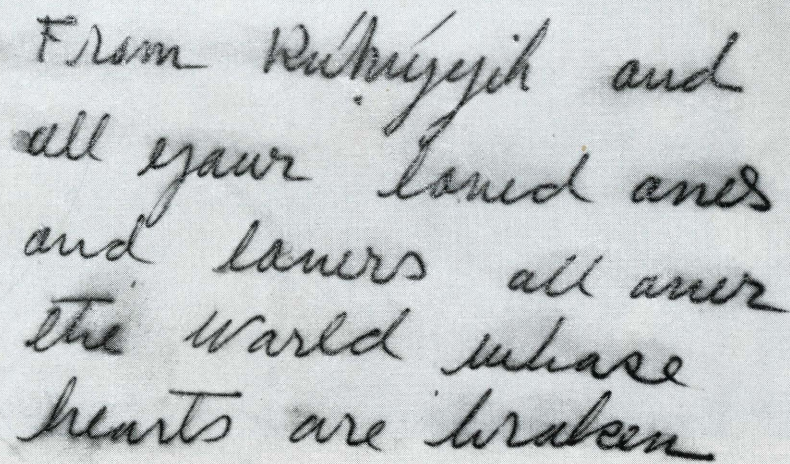 From Rúḥíyyih and
all your loved ones
and lovers all over
the World whose
hearts are broken